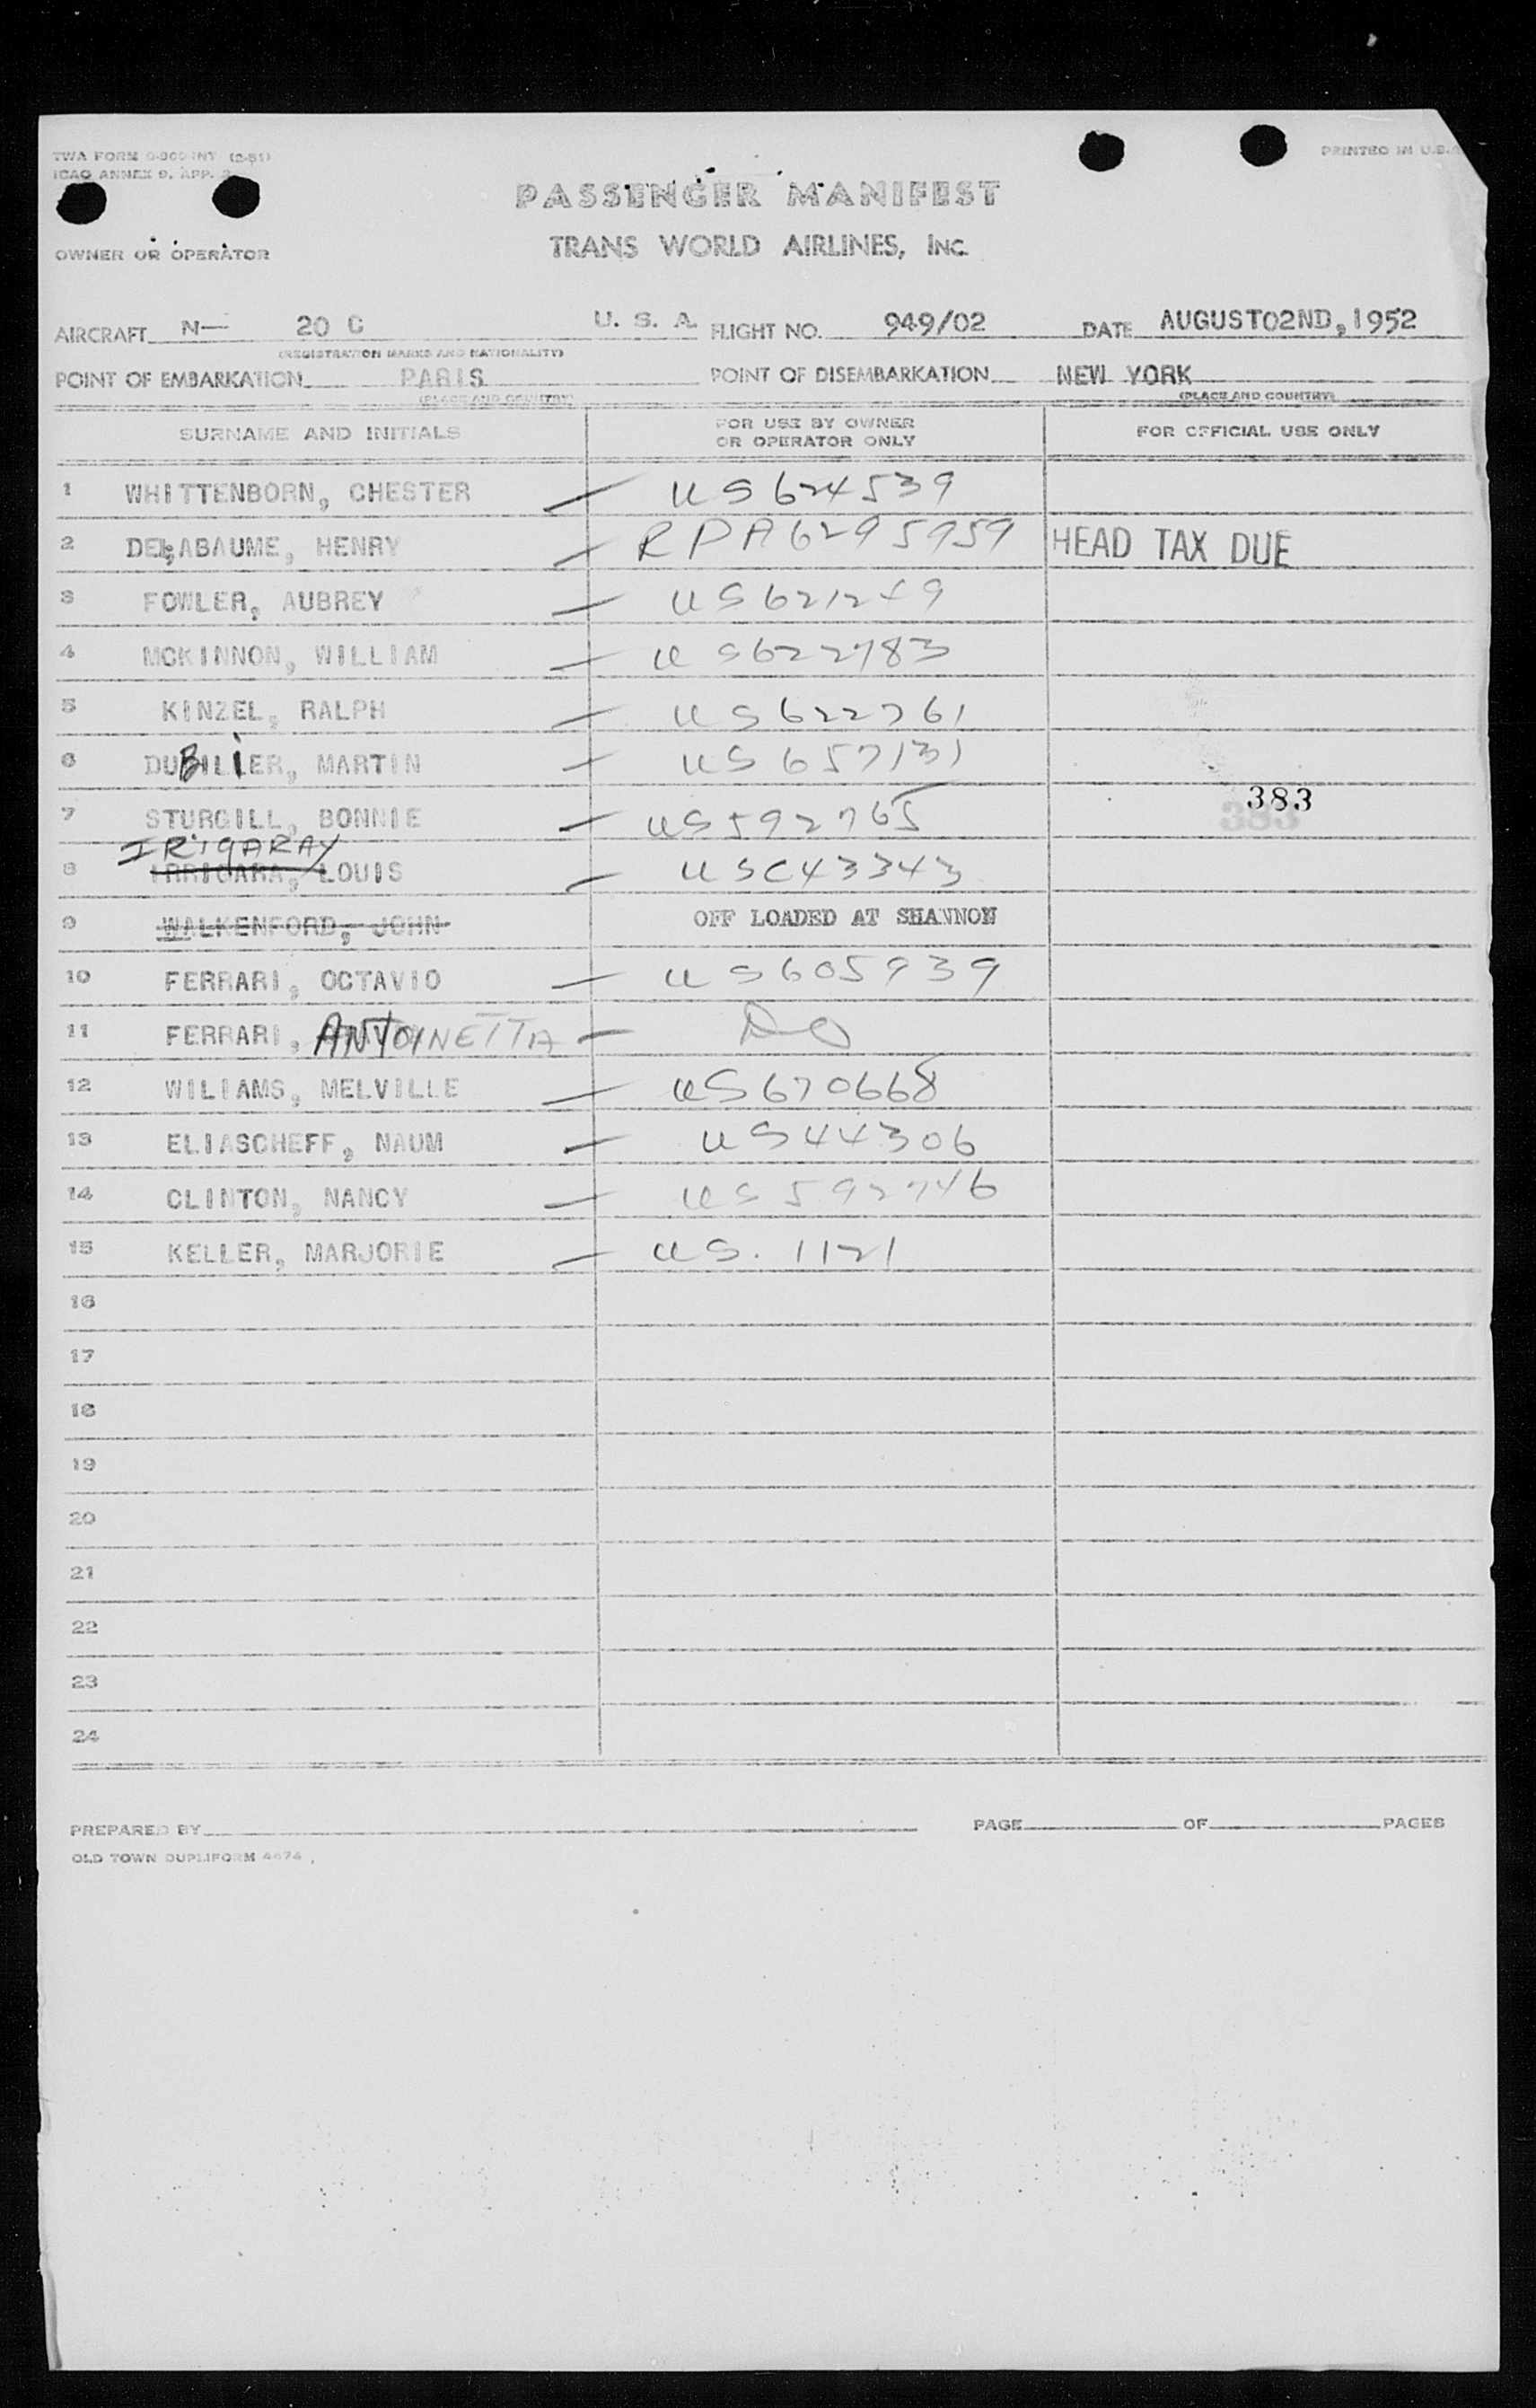 TWA FORM 0-300-INT (2-51)
PRINTED IN U.S.A
ICAO ANNEX 9, APP. 3
PASSENGER MANIFEST
OWNER OR OPERATOR
TRANS WORLD AIRLINES, INC.
AIRCRAFT N— 20 C U. S. A. FLIGHT NO. 949/02 DATE AUGUST02ND,1952
(REGISTRATION MARKS AND NATIONALITY)
POINT OF EMBARKATION PARIS POINT OF DISEMBARKATION NEW YORK
(PLACE AND COUNTRY) (PLACE AND COUNTRY)
SURNAME AND INITIALS FOR USE BY OWNER OR OPERATOR ONLY FOR OFFICIAL USE ONLY
1 WHITTENBORN, CHESTER — US624539
2 DELABAUME, HENRY — RPA6295959 HEAD TAX DUE
3 FOWLER, AUBREY — US621249
4 MCKINNON, WILLIAM — US622783
5 KINZEL, RALPH — US622761
6 DUBILIER, MARTIN — US657131
383
7 STURGILL, BONNIE — US592765 383
IRIGARAY
8 IRRIGARA, LOUIS — USC43343
9 WALKENFORD, JOHN OFF LOADED AT SHANNON
10 FERRARI, OCTAVIO — US605939
11 FERRARI, ANTOINETTA — DO
12 WILIAMS, MELVILLE — US670668
13 ELIASCHEFF, NAUM — US44306
14 CLINTON, NANCY — US592746
15 KELLER, MARJORIE — US. 1121
16
17
18
19
20
21
22
23
24
PREPARED BY PAGE OF PAGES
OLD TOWN DUPLIFORM 4674